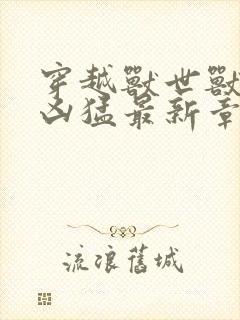 穿越獸世獸
凶猛最新章
流浪舊城